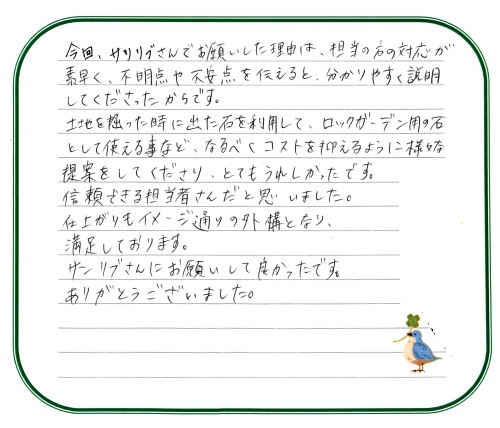 今回、サンリブさんでお願いした理由は、担当の方の対応が
素早く、不明点や不安点を伝えると、分かりやすく説明
してくださったからです。
土地を掘った時に出た石を利用して、ロックガーデン用の石
として使える事など、なるべくコストを抑えるように様々な
提案をしてくださり、とてもうれしかったです。
信頼できる担当者さんだと思いました。
仕上がりもイメージ通りの外構となり、
満足しております。
サンリブさんにお願いして良かったです。
ありがとうございました。